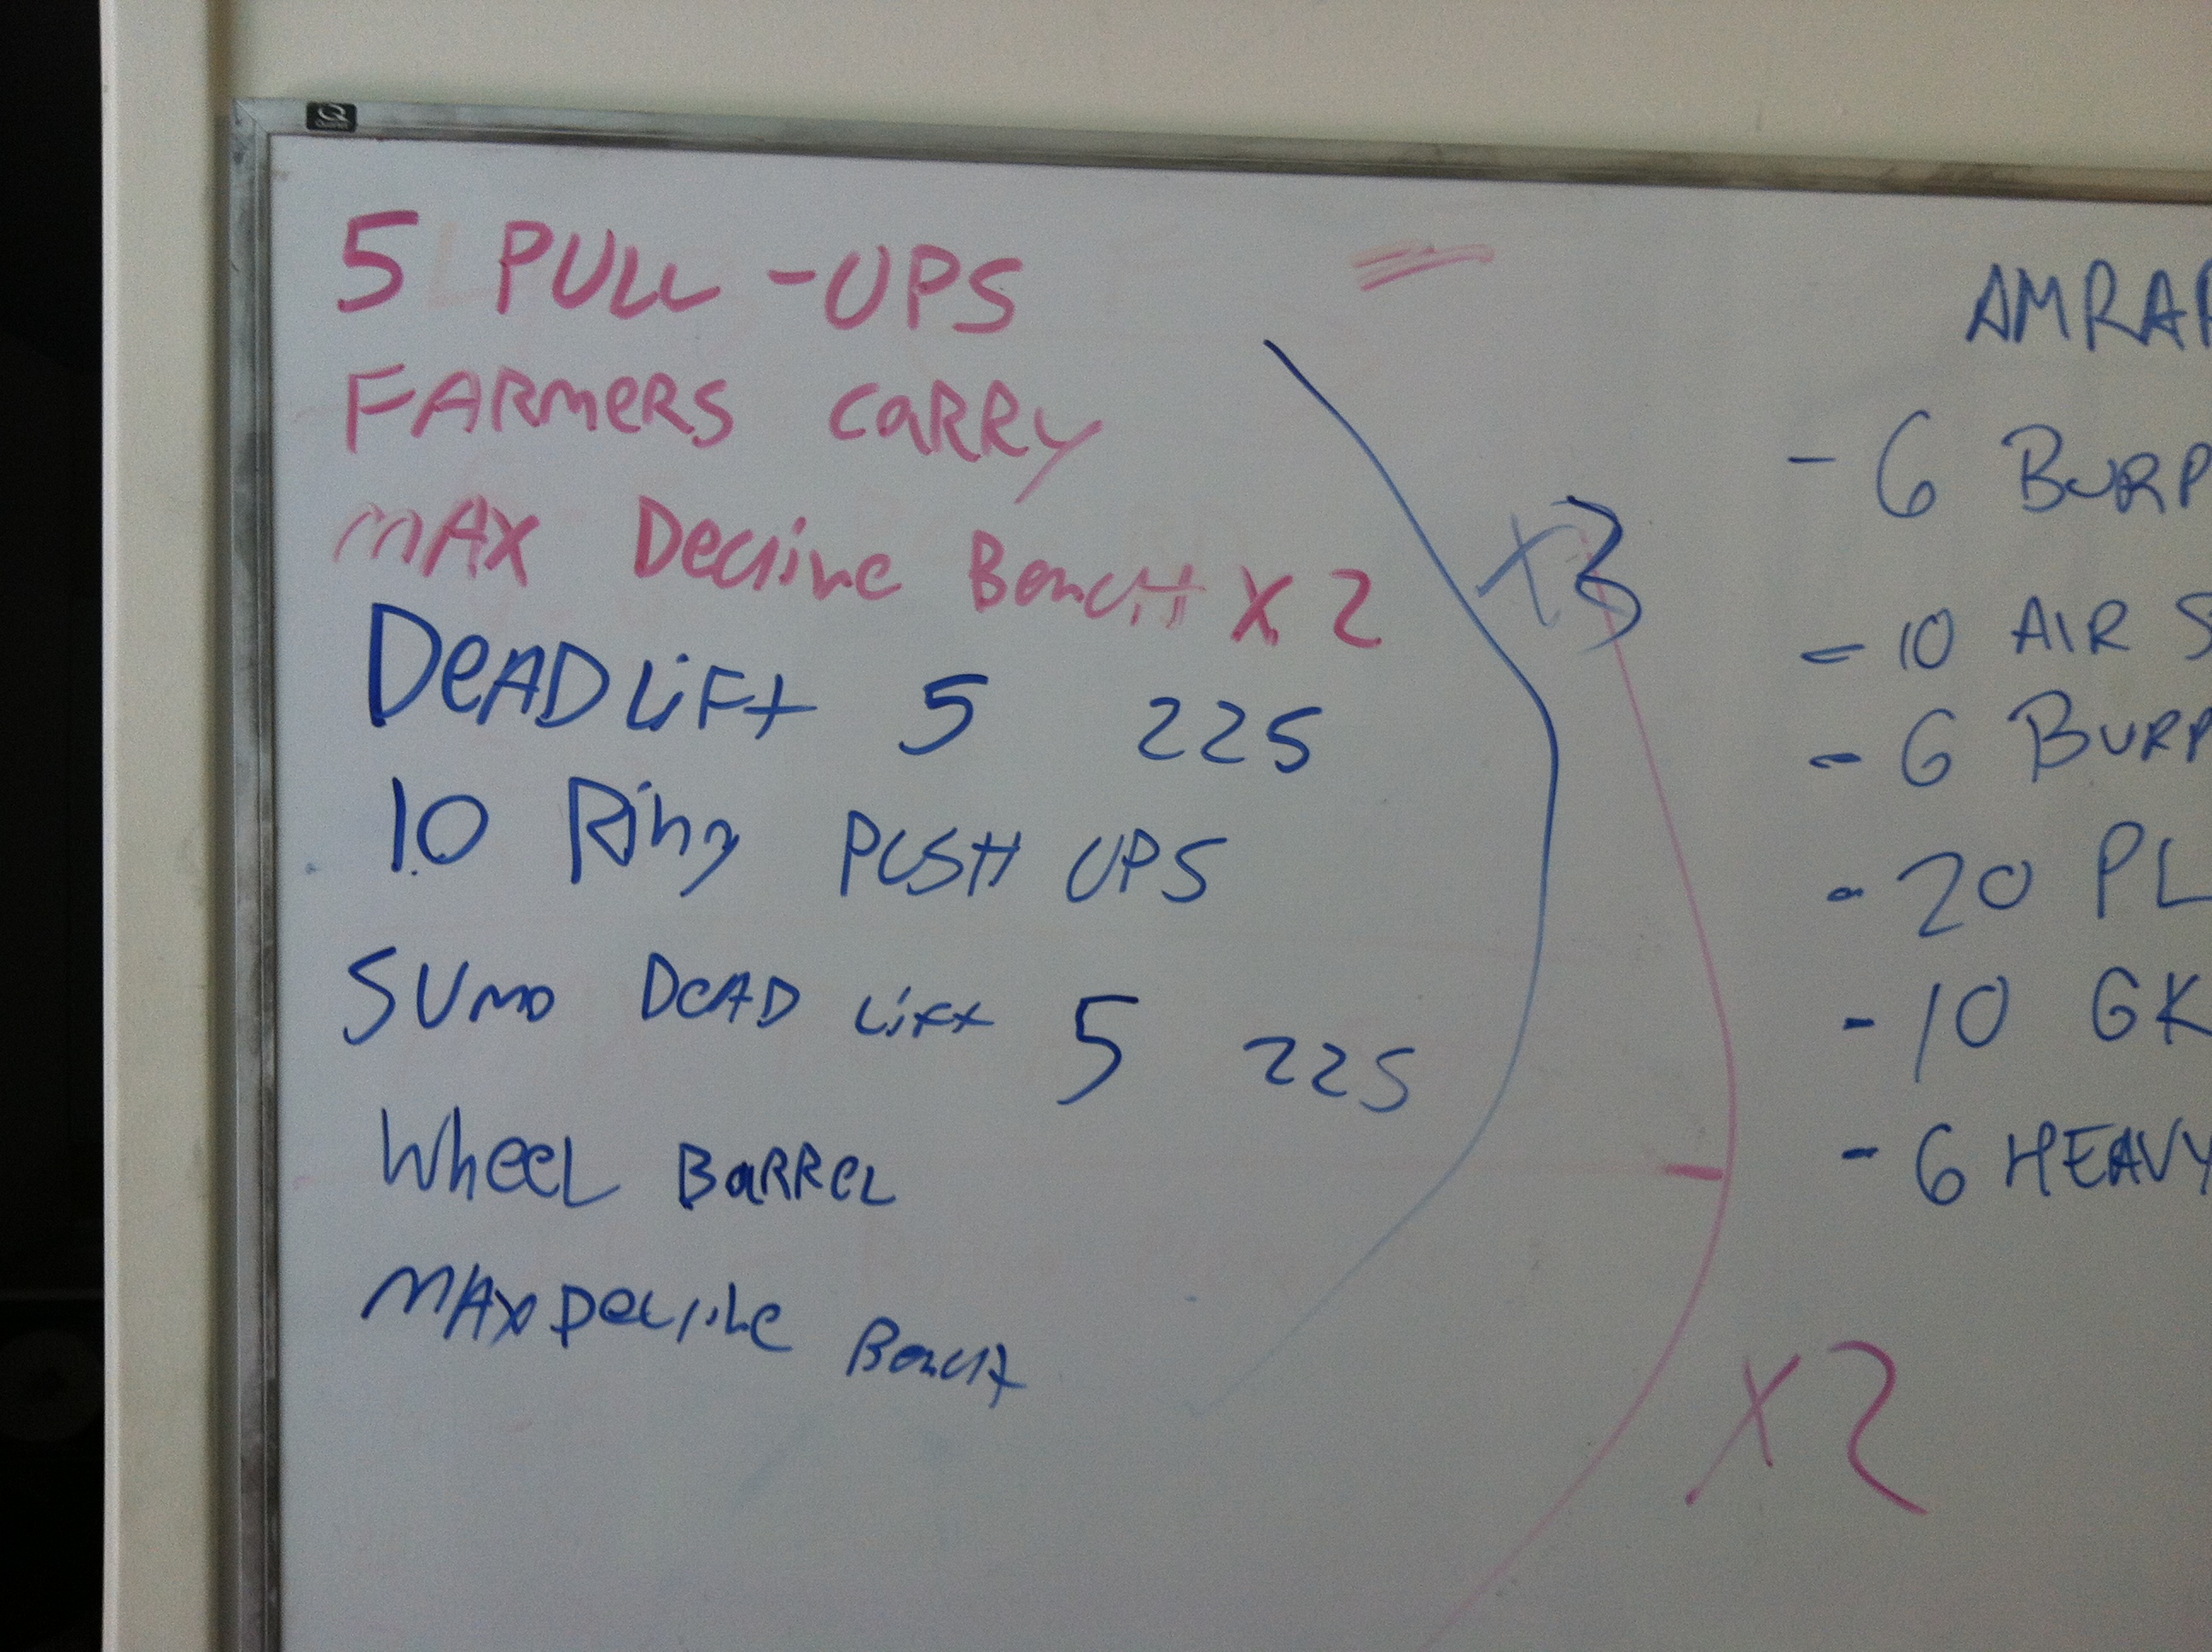 5 PULL-UPS
FARMERS CARRY
MAX Decline Bench X 2
DEADLIFT 5 225
10 Ring PUSH UPS
SUMO DEAD LIFT 5 225
Wheel BARREL
MAX Decline Bench
X3
X2
AMRAP
- 6 BURP
- 10 AIR S
- 6 BURP
- 20 PL
- 10 GK
- 6 HEAVY